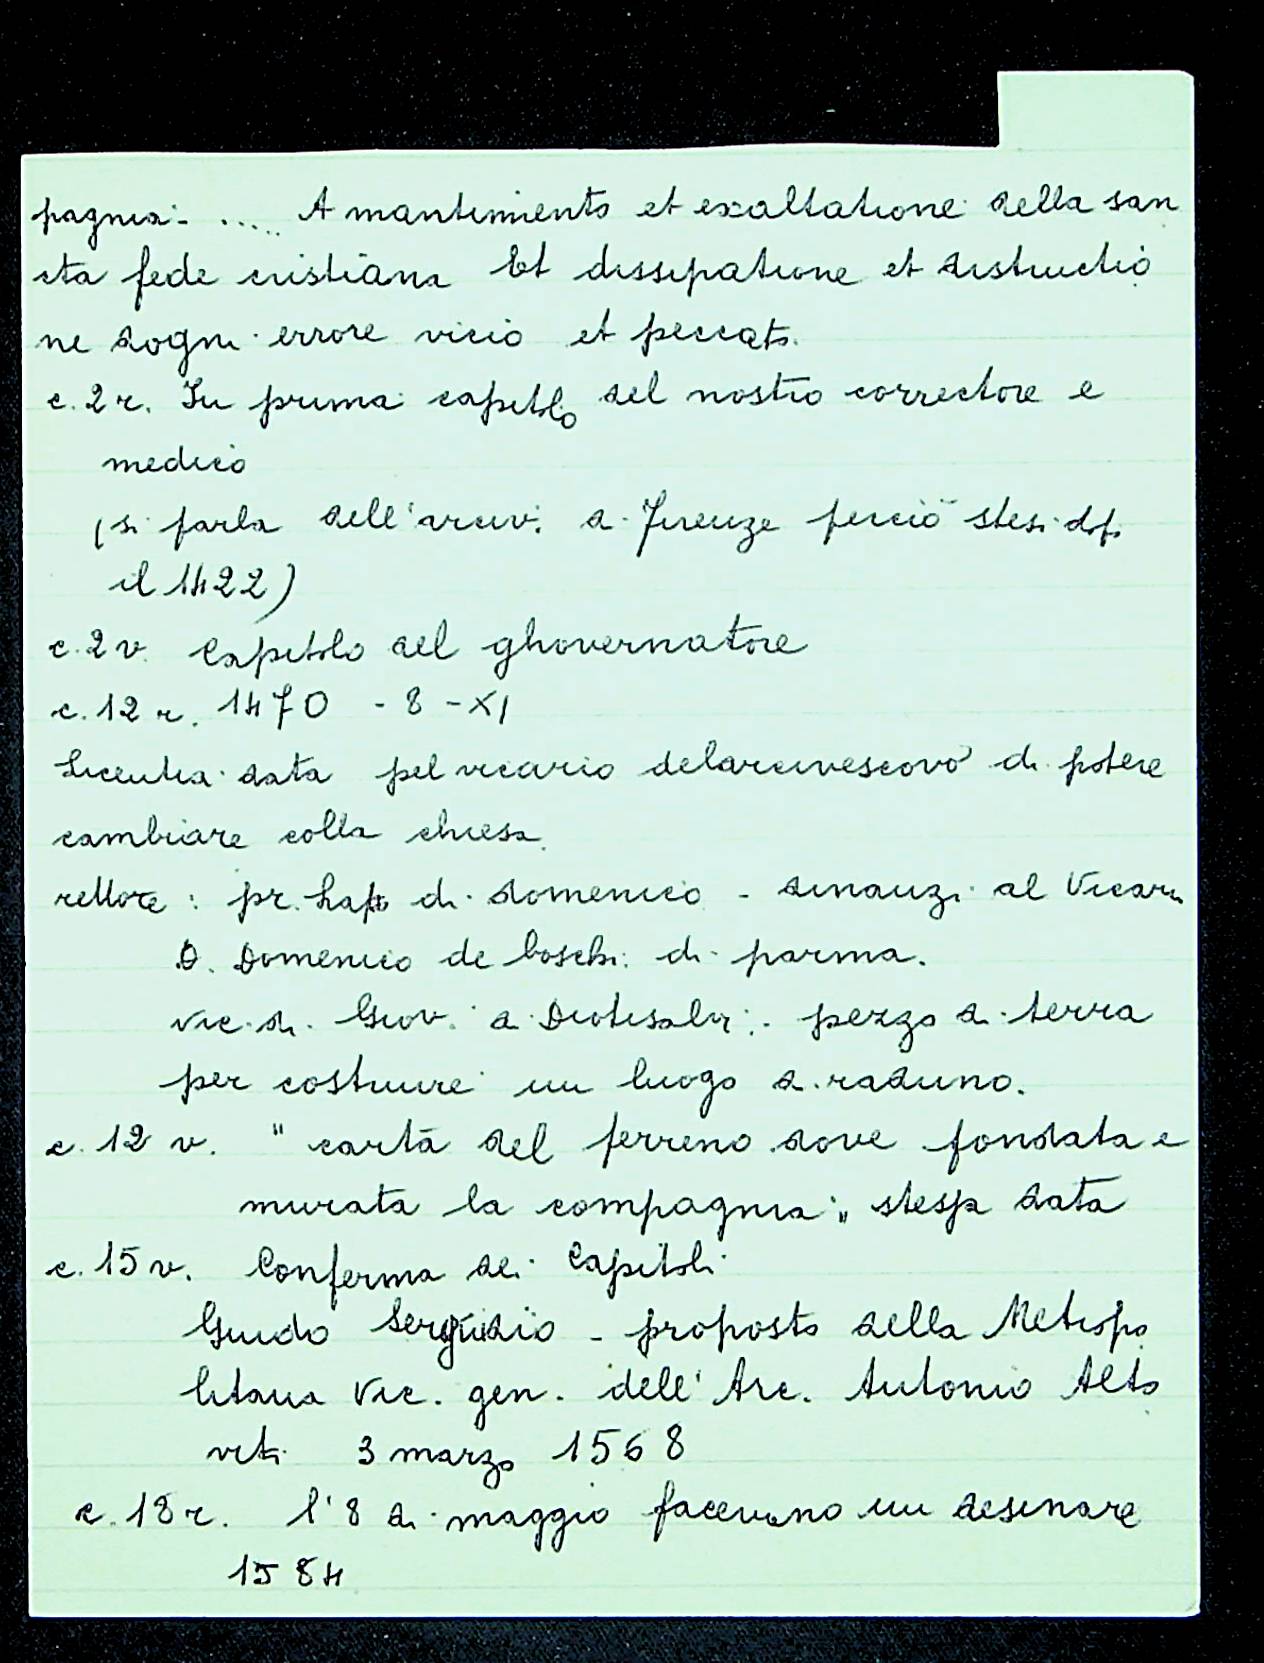 pagnia - ..... A mantimento et exaltatione della san
cta fede cristiana Et dissipatione et distructio
ne dogni errore vicio et peccato.
c. 2 r. In prima capitolo del nostro correctore e
medico
(si parla dell'arciv. di Firenze perciò stesi dop.
il 1422)
c. 2 v. Capitolo del ghovernatore
c. 12 r. 1470 - 8 - XI
Licentia data pel vicario delarcivescovo di potere
cambiare colla chiesa.
rettore : pr. Lapo di Domenico - dinanzi al Vicario
D. Domenico de boschi di parma.
Vic. di Giov. a Diotisalvi - pezzo di terra
per costruire un luogo di raduno.
c. 12 v. " carta del terreno dove fondata e
murata la compagnia " stessa data
c. 15 v. Conferma dei Capitoli
Guido Serguidio - proposto della Metropo
litana Vic. gen. dell'Arc. Antonio Alto
viti 3 marzo 1568
c. 18 r. l'8 di maggio facevano un desinare
1584